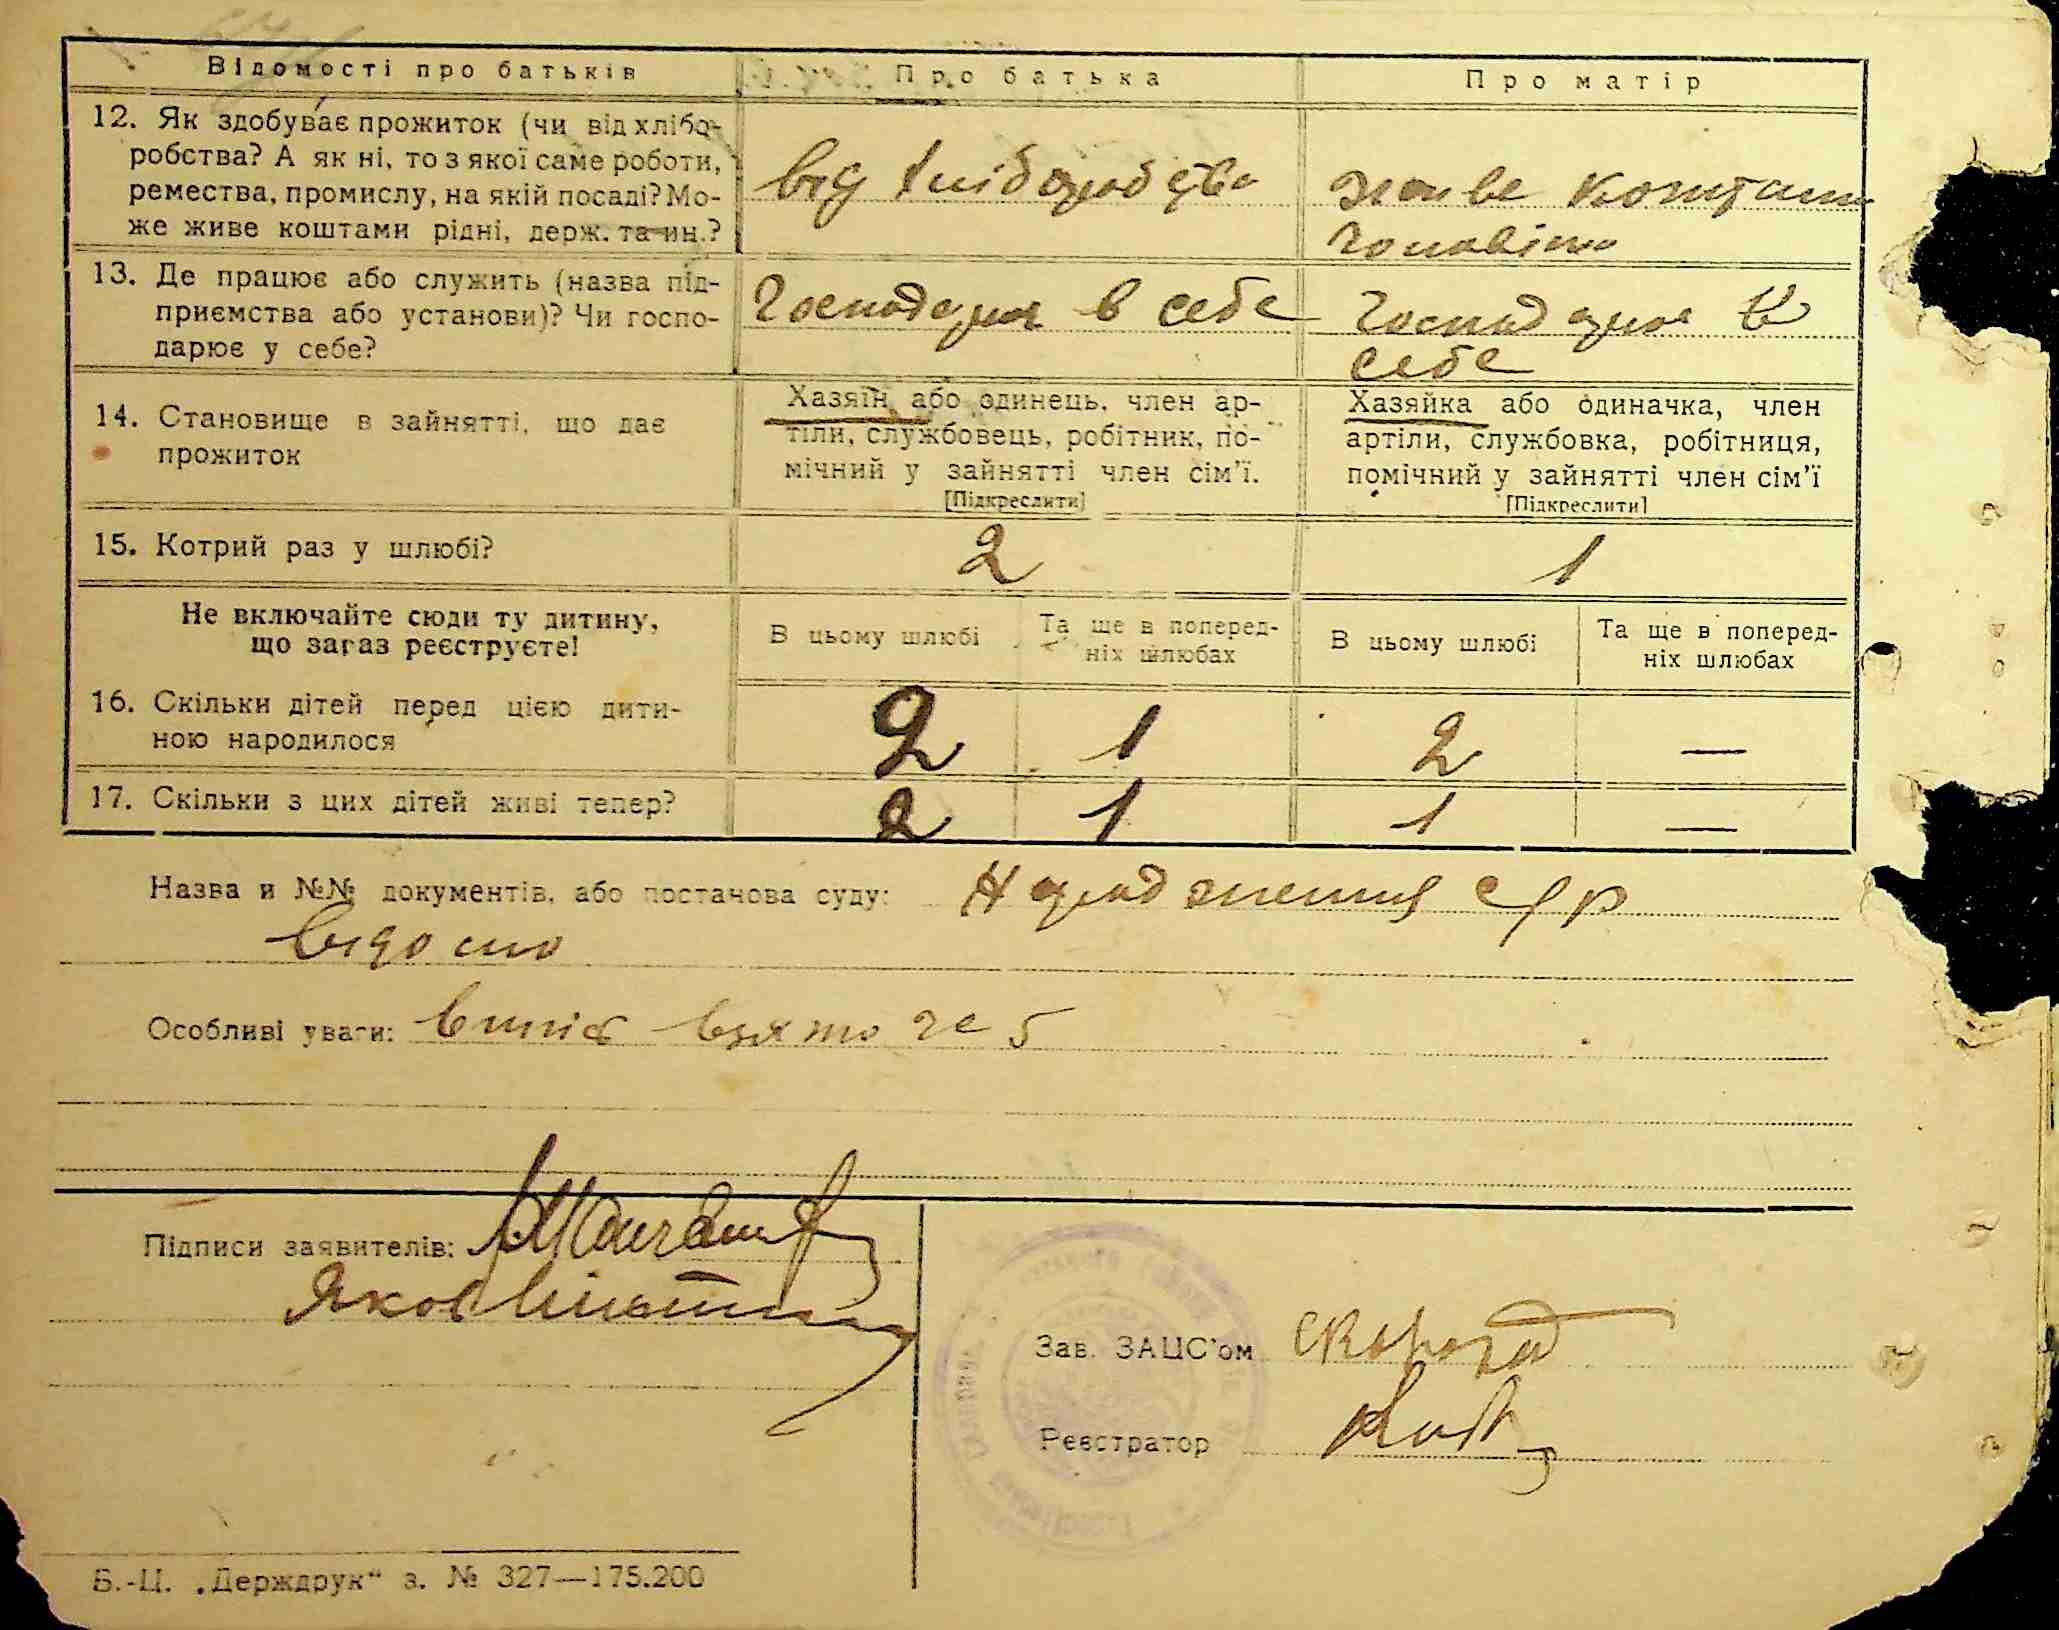 Відомості про батьків Про батька Про матір
12. Як здобуває прожиток (чи від хлібо-
робства? А як ні, то з якої саме роботи,
ремества, промислу, на якій посаді? Мо-
же живе коштами рідні, держ. та ин.?
від хліборобства
живе коштами
чоловіка
13. Де працює або служить (назва під-
приємства або установи)? Чи госпо-
дарює у себе?
Господарює в себе
Господарює в
себе
14. Становище в зайнятті, що дає
прожиток
Хазяїн або одинець, член ар-
тіли, службовець, робітник, по-
мічний у зайнятті член сім'ї.
[Підкреслити]
Хазяйка або одиначка, член
артіли, службовка, робітниця,
помічний у зайнятті член сім'ї
[Підкреслити]
15. Котрий раз у шлюбі? 2 1
Не включайте сюди ту дитину,
що зараз реєструєте!
В цьому шлюбі
Та ще в поперед-
ніх шлюбах
В цьому шлюбі
Та ще в поперед-
ніх шлюбах
16. Скільки дітей перед цією дити-
ною народилося
2 1 2 —
17. Скільки з цих дітей живі тепер? 2 1 1 —
Назва и №№ документів, або постанова суду: Народження с/р
відомо
Особливі уваги: взято 5
Підписи заявителів:
Яков
Зав. ЗАЦС'ом
Реєстратор
Б.-Ц. „Держдрук“ з. № 327—175.200